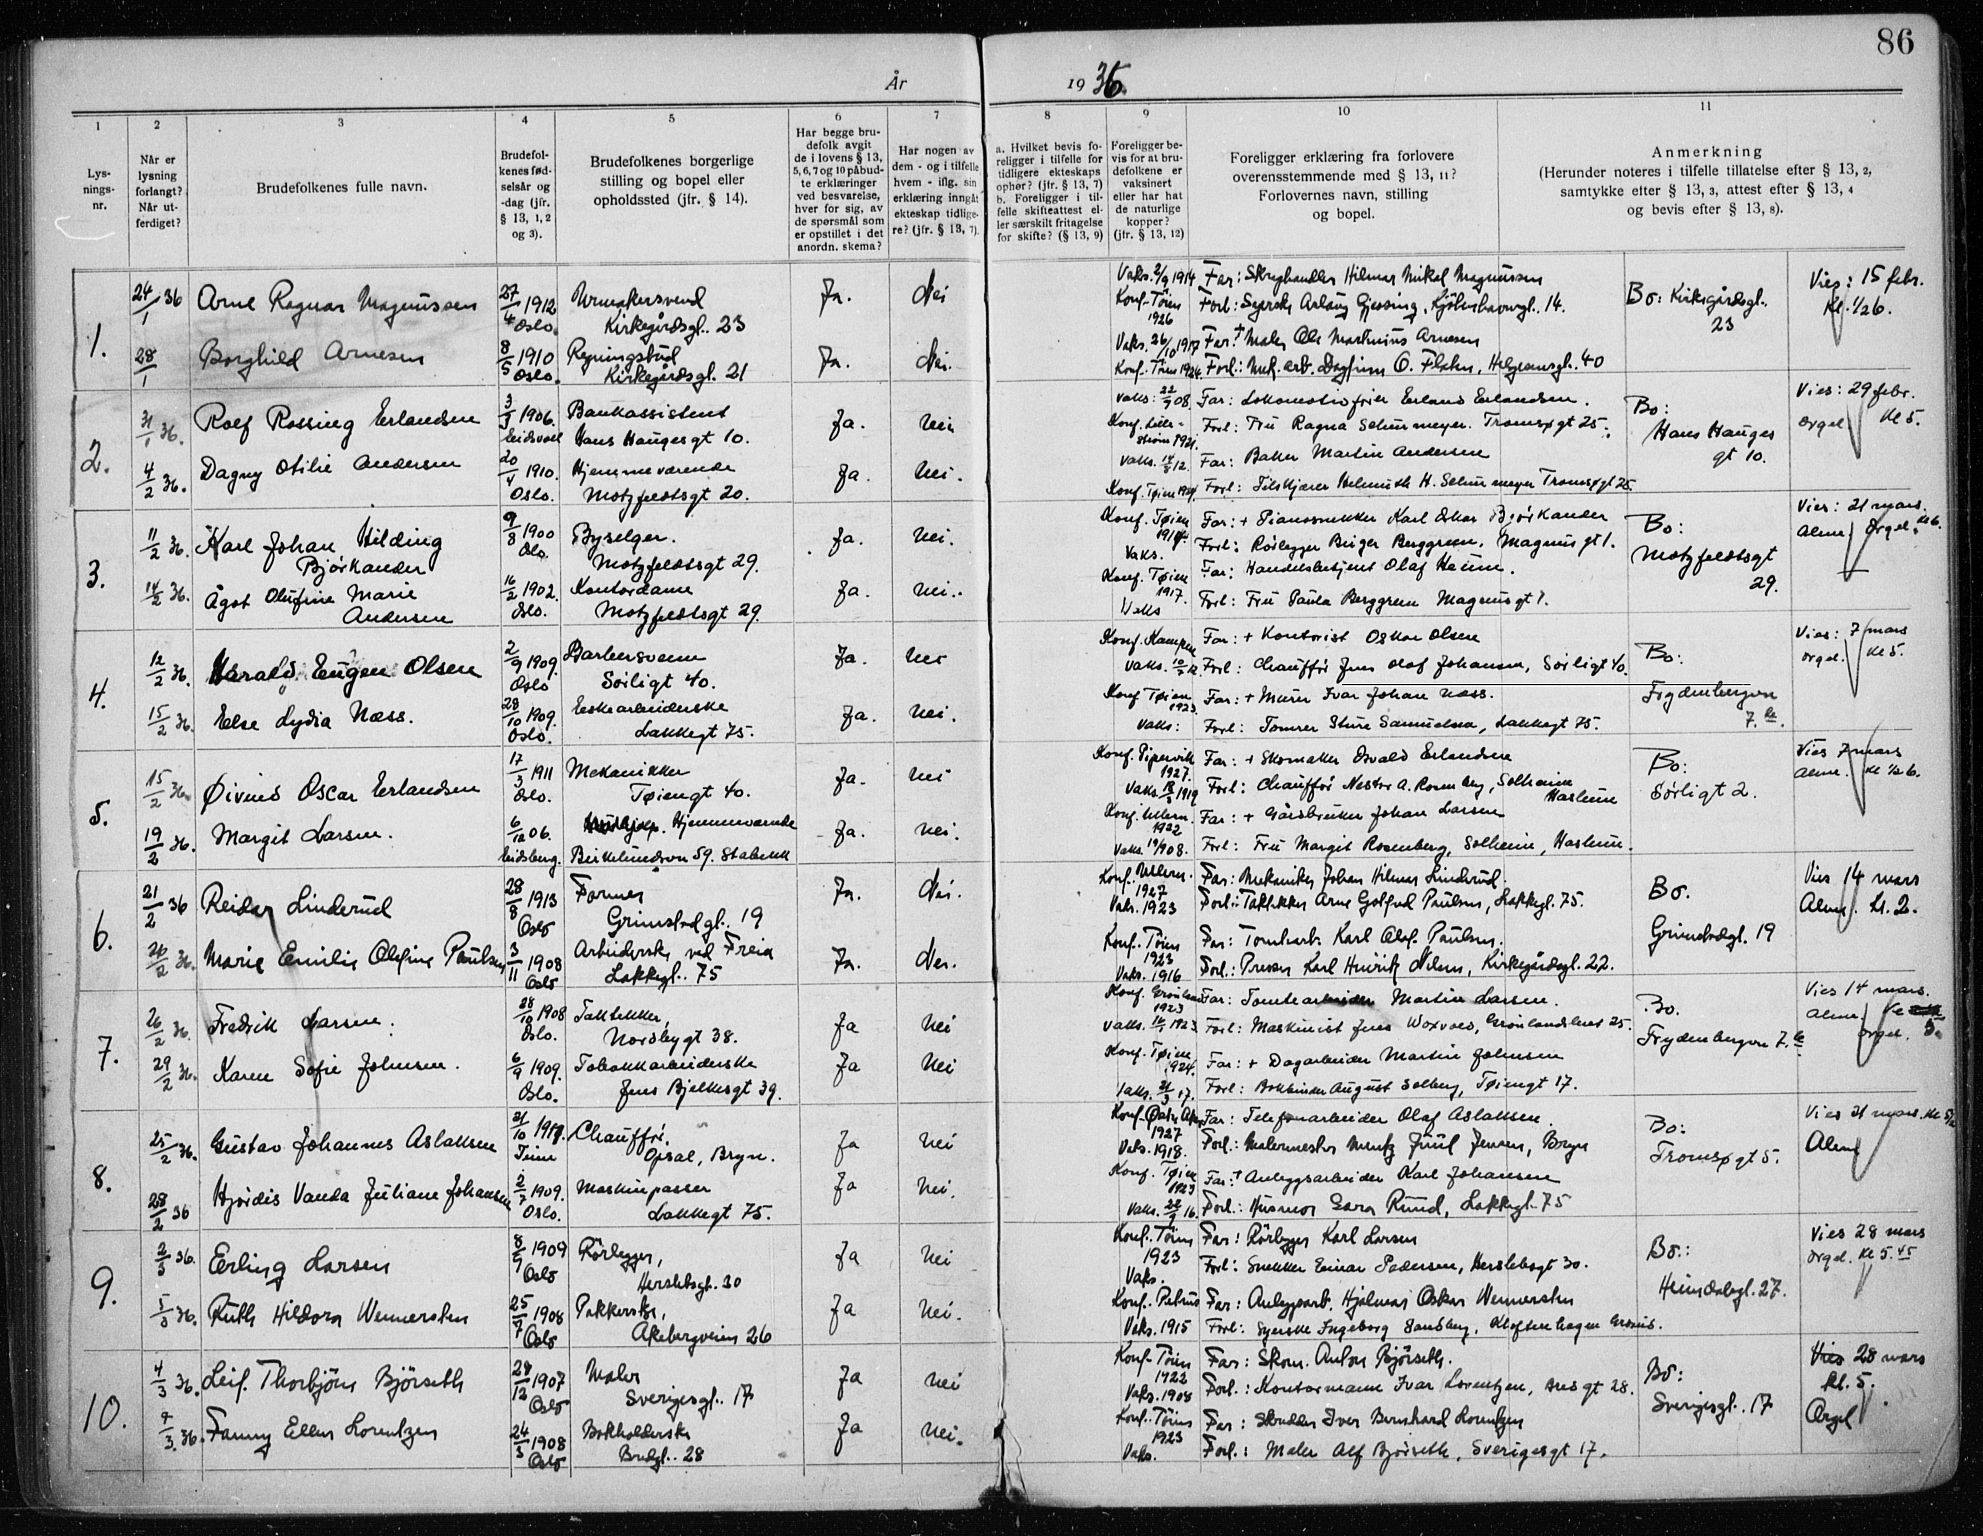 86
År 1936.
1 2 3 4 5 6 7 8 9 10 11
Lys-
nings-
nr.
Når er
lysning
forlangt?
Når ut-
ferdiget?
Brudefolkenes fulle navn.
Brudefol-
kenes fød-
selsår og
-dag (jfr.
§ 13, 1, 2
og 3).
Brudefolkenes borgerlige
stilling og bopel eller
opholdssted (jfr. § 14).
Har begge bru-
defolk avgit
de i lovens § 13,
5, 6, 7 og 10 påbud-
te erklæringer
ved besvarelse,
hver for sig, av
de spørsmål som
er opstillet i det
anordn. skema?
Har nogen av
dem - og i tilfelle
hvem - iflg. sin
erklæring inngåt
ekteskap tidlige-
re? (jfr. § 13, 7).
a. Hvilket bevis fo-
religger i tilfelle for
tidligere ekteskaps
ophør? (jfr. § 13, 7)
b. Foreligger i til-
felle skifteattest el-
ler særskilt fritagelse
for skifte? (§ 13, 9)
Foreligger be-
vis for at bru-
defolkene er
vaksinert
eller har hat
de naturlige
kopper?
(jfr. § 13, 12)
Foreligger erklæring fra forlovere
overensstemmende med § 13, 11?
Forlovernes navn, stilling
og bopel.
Anmerkning
(Herunder noteres i tilfelle tillatelse efter § 13, 2,
samtykke efter § 13, 3, attest efter § 13, 4
og bevis efter § 13, 8).
1.
24/1 36 Arne Ragnar Magnussen 27/4 1912 Oslo Urmakersvend Kirkegårdsgt. 23 Ja. Nei
Vaks. 2/9 1914 Far: Hilmar Mikal Magnussen
Konf. Tøien 1926 Forl: Gjessing, 14.
Bo: Kirkegårdsgt. 23
Vies: 15 febr. Kl. 1/2 6.
28/1 Borghild Arnesen 8/5 1910 Oslo. Regningsbud Kirkegårdsgt. 21 Ja. Nei.
Vaks. 26/10 1917 Far: + Maler Ole Martinius Arnesen
Konf. Tøien 1924. Forl: Mek. arb. Dagfinn O. Flaten, Helgesensgt. 40
2.
31/1 36. Rolf Rossing Erlandsen 3/9 1906. Eidsvoll Bankassistent Hans Hauges gt 10. Ja. Nei
Vaks: 22/9 08. Far: Lokomotivfører Erland Erlandsen.
Konf. Lille-
strøm 1921. Forl: Fru Ragna Schurmeyer. Tromsøgt 25.
Bo: Hans Hauges gt 10.
Vies: 29 febr. Orgel Kl 5.
4/2 36. Dagny Otilie Andersen 20/4 1910. Oslo. Hjemmeværende Motzfeldtsgt 20. Ja. Nei.
Vaks. 14/8 12. Far: Baker Martin Andersen
Konf. Tøien Forl: Tilskjærer Helmuth H. Schurmeyer Tromsøgt 25.
3.
11/2 36. Karl Johan Hilding Bjørkander 9/8 1900 Oslo. Byselger. Motzfeldtsgt 29. Ja. Nei.
Konf. Tøien 1914. Far: + Pianosnekker Karl Oskar Bjørkander
Vaks. Forl: Rørlegger Birger Berggren, Magnusgt 1.
Bo: Motzfeldtsgt 29.
Vies: 21 mars. Alm Orgel. Kl 6.
14/2 36. Ågot Olufine Marie Andersen 16/2 1902. Oslo. Kontordame Motzfeldtsgt 29. Ja. Nei.
Konf. Tøien 1917. Far: Handelsbetjent Olaf
Vaks Forl: Fru Paula Berggren Magnusgt 1.
4.
12/2 36. Harald Eugen Olsen 2/9 1909. Oslo Barbersvenn Sørligt 40. Ja. Nei
Konf. Kampen Far: + Kontorist Oskar Olsen
Vaks. Forl: Chauffør Jens Olaf Johansen, Sørligt 40.
Bo: Frydenbergvn 7.
Vies: 7 mars Orgel. Kl 5.
15/2 36. Else Lydia Næss. 28/10 1909. Oslo. Eskearbeiderske Lakkegt 75. Ja. Nei.
Konf Tøien 1923. Far: + Murer Ivar Johan Næss.
Vaks: Forl: Tømrer Sture Samuelsen, Lakkegt 75.
5.
15/2 36. Øivind Oscar Erlandsen 17/3 1911 Oslo. Mekanikker Tøiengt 40. Ja. Nei
Konf. Pipervik 1927. Far: + Skomaker Osvald Erlandsen
Vaks. 18/3 1919 Forl: Chauffør Nestor A. Rosenberg, Solheim Haslum
Bo: Sørligt 2.
Vies 7 mars Alm. Kl 1/2 6.
19/2 36. Margit Larsen. 6/12 06. Eidsberg. Hjemmeværende Birkelundsvn 59. Stabekk Ja. Nei.
Konf. Ullern 1922 Far: + Gårdbruker Johan Larsen
Vaks. 19/9 08. Forl: Fru Margit Rosenberg, Solheim, Haslum.
6.
21/2 36 Reidar Linderud 28/8 1913 Oslo Former Grimstadgt. 19 Ja. Nei.
Konf. 1927 Far: Mekaniker Johan Hilmar Linderud.
Vaks. 1923 Forl: Taktekker Arne Paulsen, Lakkegt. 75.
Bo. Grimstadgt. 19
Vies 14 mars Alm. kl. 2.
26/2 36. Marie Emilie Olefine Paulsen 3/11 1908 Oslo Arbeiderske ved Freia Lakkegt. 75 Ja. Nei.
Konf. Tøien 1923 Far: Tomtarb. Karl Olaf Paulsen.
Vaks. 1916 Forl.: Presser Karl Henrik Nilsen, Kirkegårdsgt. 22.
7.
26/2 36. Fredrik Larsen. 28/10 1908 Oslo. Taktekker Nordbygt 38. Ja Nei
Konf. Grønland 1923 Far: Tomtearbeider Martin Larsen.
Vaks. 1923. Forl: Maskinist Jens Woxvold, Grønlandsleret 25.
Bo. Frydenbergvn 7.
Vies 14 mars. Alm. Orgel. Kl 3.
29/2 36. Karen Sofie Johnsen. 6/9 1909. Oslo. Tobakkarbeiderske Jens Bjelkesgt 39. Ja Nei
Konf. Tøien 1924. Far: + Dagarbeider Martin Johnsen
Vaks. 21/3 17. Forl: Bokbinder August Solberg, Tøiengt 17.
8.
25/2 36. Gustav Johannes Aslaksen 21/10 Time Chauffør, Opsal, Bryn. Ja Nei
Konf. Østre Aker 1927 Far: Telefonarbeider Olaf Aslaksen.
Vaks. 1918. Forl: Malermester Mentz Juul Jensen, Bryn
Bo: Tromsøgt 5.
Vies 21 mars. Alm
28/2 36 Hjørdis Vanda Juliane Johansen 2/7 1909. Oslo. Maskinpasser Lakkegt 75. Ja Nei.
Konf. Tøien 1923 Far: + Anleggsarbeider Karl Johansen
Vaks. 16. Forl: Husmor Sara Rund, Lakkegt. 75
9.
2/3 36. Erling Larsen 8/9 1909 Oslo Rørlegger, Herslebsgt. 30 Ja Nei
Konf. Tøien 1923 Far: Rørlegger Karl Larsen
Vaks. Forl: Snekker Einar Pedersen, Herslebsgt 30.
Bo.: Heimdalsgt. 27.
Vies 28 mars Orgel. Kl 5.45
5/3 36. Ruth Hildora Wennersten 25/7 1908 Oslo Pakkerske, Akebergveien 26 Ja Nei.
Konf. Petrus Far: Anleggsarb. Hjalmar Oskar Wennersten
Vaks. 1915 Forl: Syerske Ingeborg Sandberg,
10.
4/3 36. Leif Thorbjørn Bjørseth 28/12 1907 Oslo Maler Sverigesgt. 17 Ja Nei
Konf. Tøien 1922 Far: Skom. Anton Bjørseth.
Vaks. 1908 Forl.: Kontormann Ivar Lorentzen, gt 28.
Bo: Sverigesgt. 17
Vies 28 mars kl. 5. Orgel
4/3 36. Fanny Ellen Lorentzen 24/3 1908 Oslo Bokholderske 28 Ja Nei.
Konf. Tøien 1923 Far: Skredder Iver Bernhard Lorentzen
Vaks. Forl.: Maler Alf Bjørseth, Sverigesgt 17.